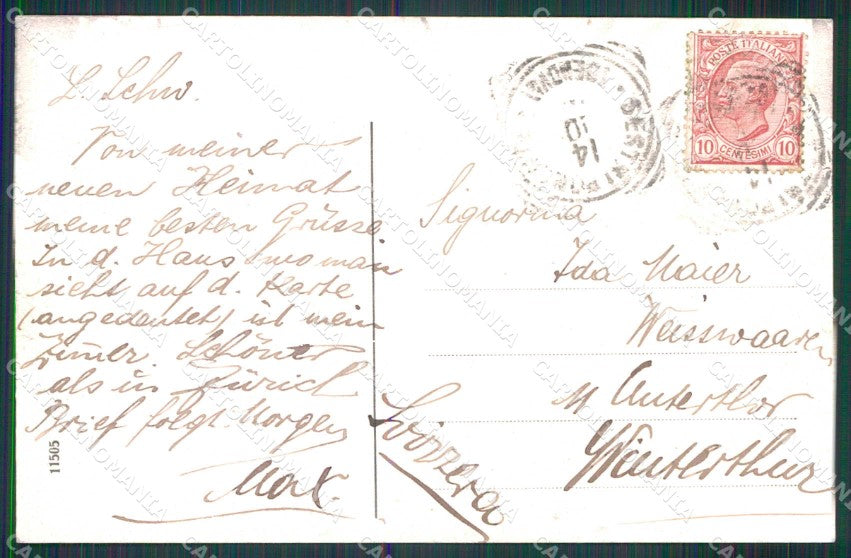 L. Schw.
Von meiner
neuen Heimat
meine besten Grüsse
In d. Haus wo man
sieht auf d. Karte
(angedeutet) ist mein
Zimer. Schöner
als in Zürich
Brief folgt. Morgen
Max.
11505
SESTRI PONENTE
14
10
POSTE ITALIANE
10 CENTESIMI 10
Signorina
Ida Maier
Weisswaaren
Unterthor
Winterthur
Svizzera
CARTOLINOMANIA